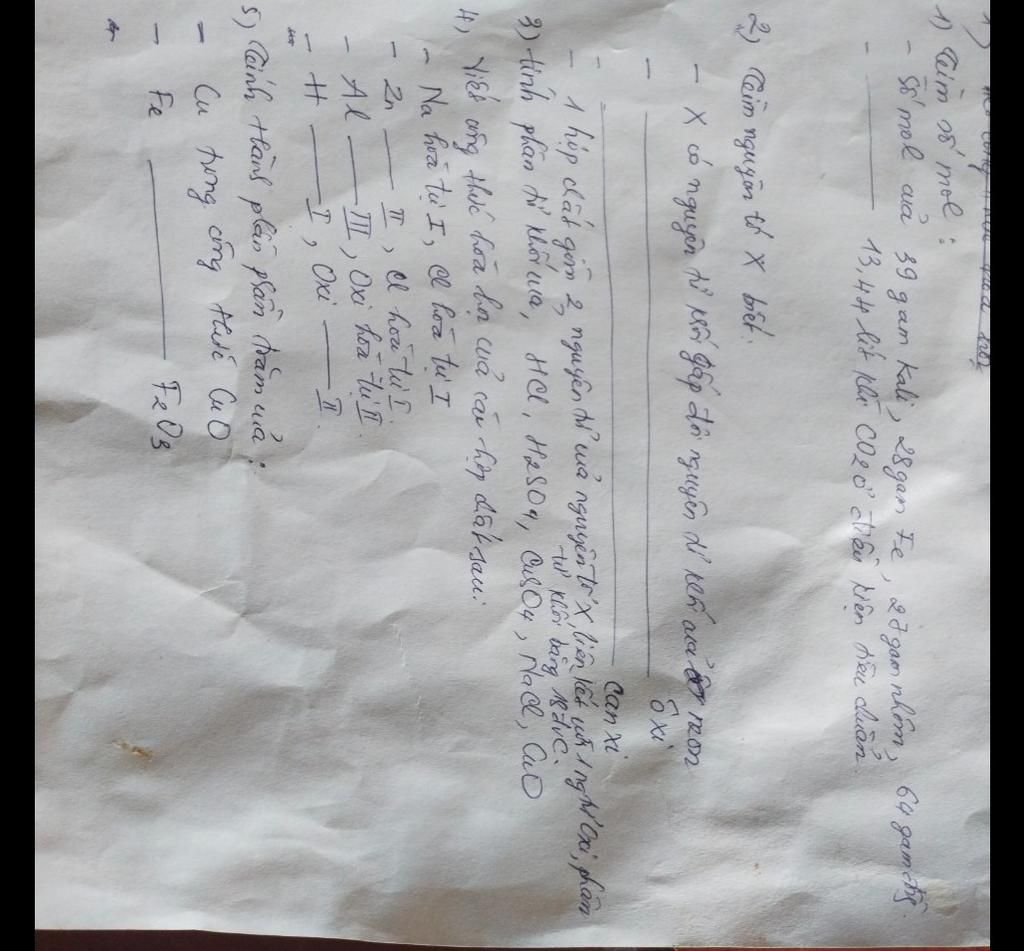 1) Tìm số mol:
- Số mol của 39 gam Kali, 28 gam Fe, 27 gam nhôm, 64 gam đồng.
- 13,44 lít khí CO2 ở điều kiện tiêu chuẩn.
2) Tìm nguyên tố X biết:
- X có nguyên tử khối gấp đôi nguyên tử khối của
- ôxi.
- Can xi.
- 1 hợp chất gồm 2 nguyên tử của nguyên tố X liên kết với 1 ng tử Oxi, phân
tử khối bằng
3) tính phân tử khối của, HCl, H2SO4, CuSO4, NaCl, CuO
4) Viết công thức hóa học của các hợp chất sau:
- Na hoá trị I, Cl hoá trị I
- Zn II, Cl hoá trị I.
- Al III, Oxi hoá trị II.
- H I, Oxi II.
5) Tính thành phần phần trăm của:
- Cu trong công thức CuO
- Fe Fe2O3